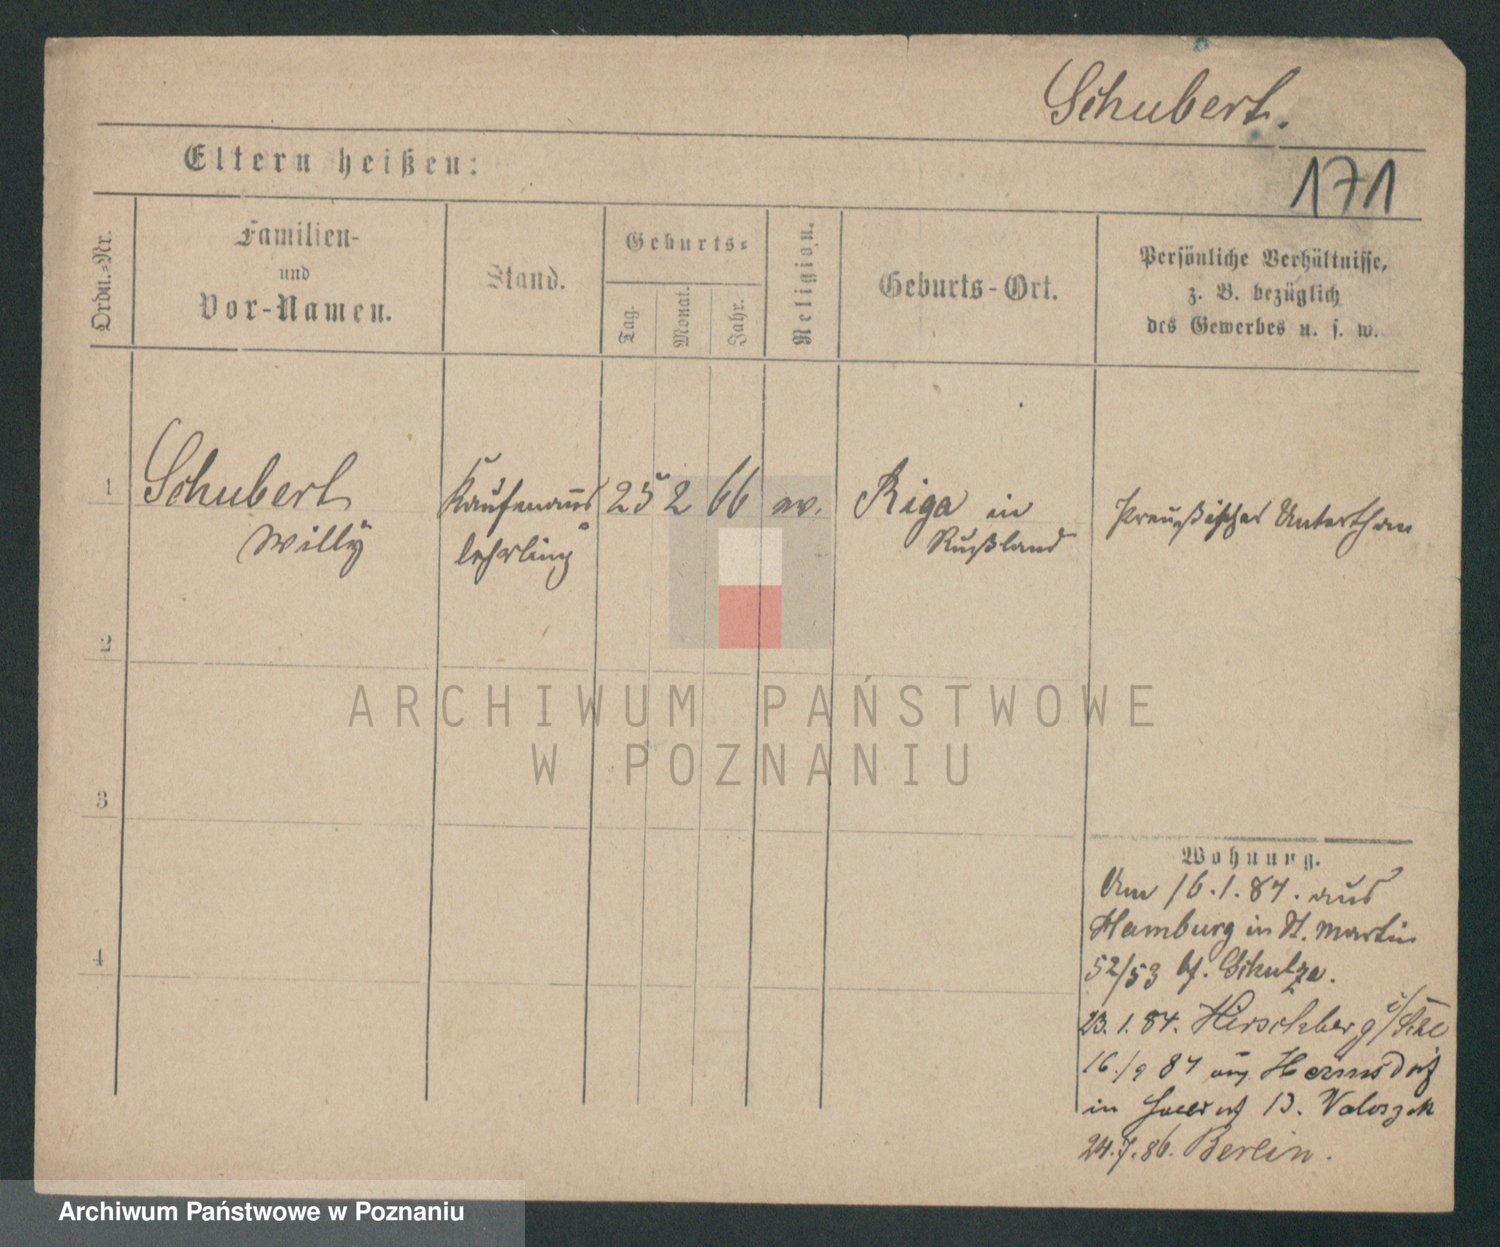 Schubert.
Eltern heißen:
171
Ordn.-Nr.
Familien-
und
Vor-Namen.
Stand.
Geburts-
Tag.
Monat.
Jahr.
Religion.
Geburts-Ort.
Persönliche Verhältnisse,
z. B. bezüglich
des Gewerbes u. s. w.
1 Schubert Kaufmanns 25 2 66 ev. Riga in Preußischer Unterthan
Willy lehrling Rußland
2
3
4
Wohnung.
Am 16.1.84. aus
Hamburg in St. Martin
52/53 bf. Schulze.
23.1.84. Hirschberg i/Schl
16./9 84 aus Hermsdorf
in 13.
24.7.86. Berlin.
ARCHIWUM PAŃSTWOWE
W POZNANIU
Archiwum Państwowe w Poznaniu